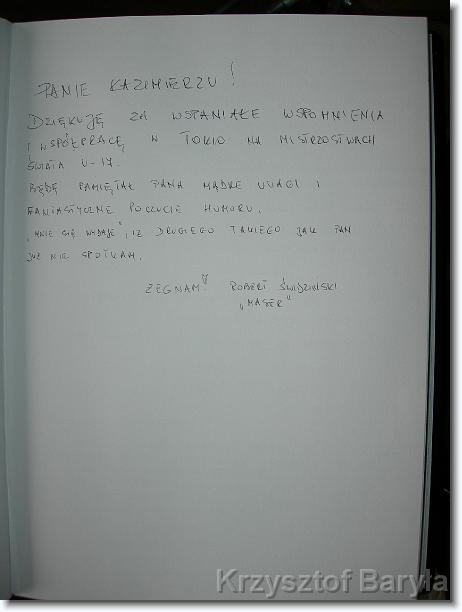 PANIE KAZIMIERZU!
DZIĘKUJĘ ZA WSPANIAŁE WSPOMNIENIA
I WSPÓŁPRACĘ W TOKIO NA MISTRZOSTWACH
ŚWIATA U-17.
BĘDĘ PAMIĘTAŁ PANA MĄDRE UWAGI I
FANTASTYCZNE POCZUCIE HUMORU.
„MNIE SIĘ WYDAJE", IŻ DRUGIEGO TAKIEGO JAK PAN
JUŻ NIE SPOTKAM.
ŻEGNAM! ROBERT ŚWIDZIŃSKI
„MASER"
Krzysztof Baryła